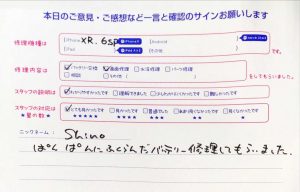 本日のご意見・ご感想など一言と確認のサインお願いします
修理機種は
iPhone XR. 6s
iPad
その他
修理内容は
バッテリー交換 画面修理 水没修理 パーツ修理
をしてもらいました。
スタッフの説明は
わかりやすかったです 理解できました 少しわかりにくかったです 難しかったです
スタッフの対応は
★星の数★
とても良かったです 良かったです 普通でした 良くなかったです
★★★★★ ★★★★ ★★★ ★★ ★
ニックネーム: Shino
ぱんぱんにふくらんだバッテリー修理してもらいました。